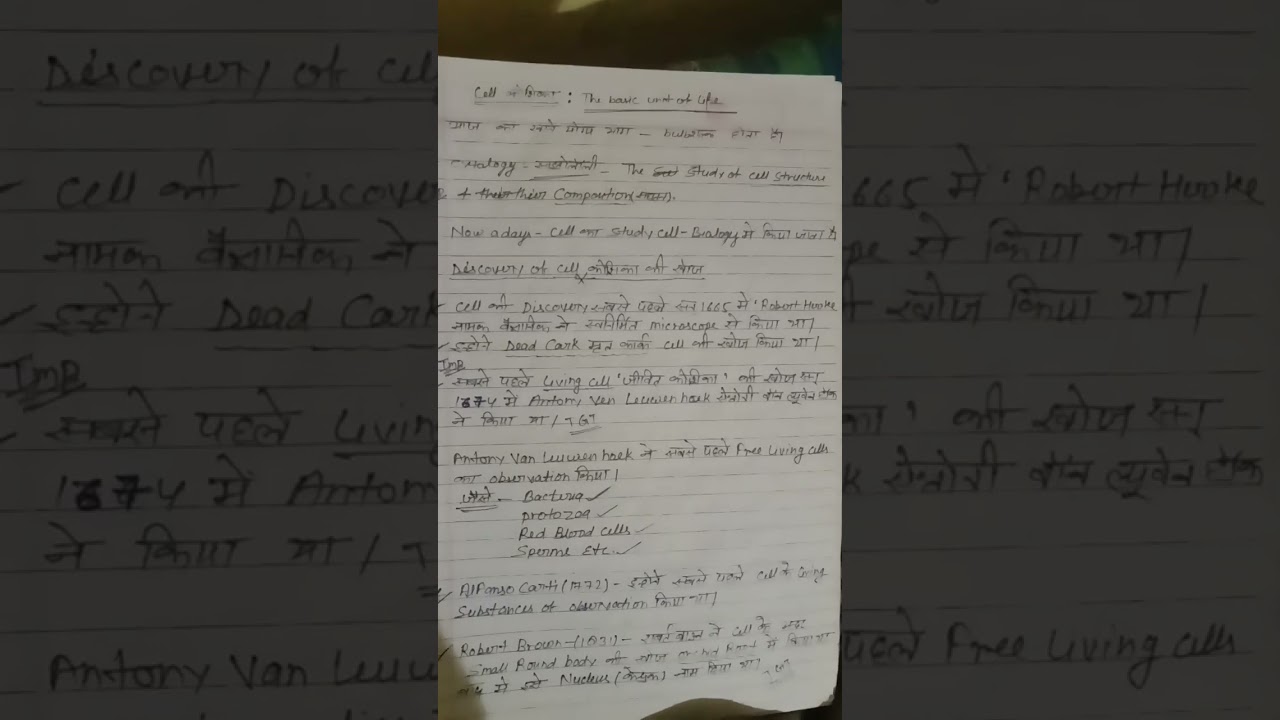 Cell कोशिका : The basic unit of life
आज का
- The Study of cell structure
& their Compostion
Now a days - Cell का study cell-Biology में किया जाता है
Discovery of cell, कोशिका की खोज
Cell की Discovery सबसे पहले सन् 1665 में 'Robort Hooke
नामक वैज्ञानिक ने स्वनिर्मित microscope से किया था।
इन्होंने Dead Cark मृत कार्क cell की खोज किया था।
IMP
सबसे पहले Living cell 'जीवित कोशिका' की खोज सन्
1674 में Antony Van Leuwen hoek एन्टोनी वॉन ल्यूवेन हॉक
ने किया था।
Antony Van Leuwen hoek ने सबसे पहले Free Living cells
का observation किया।
जैसे - Bacteria
protozoa
Red Blood cells
Sperme Etc.
Alfanso Carti (1772) - इन्होंने सबसे पहले cell के living
Substances of observation किया था।
Robert Brown - (1831) - राबर्ट ब्राउन ने cell के
Small Round body की खोज में किया था
बाद में इसे Nucleus (केन्द्रक) नाम दिया था।